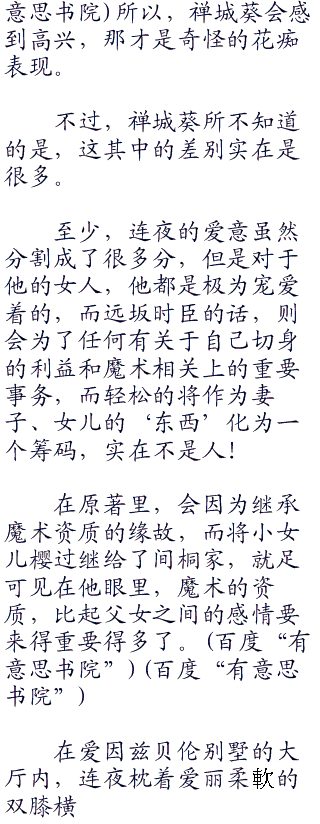 意思书院)所以，禅城葵会感
到高兴，那才是奇怪的花痴
表现。
不过，禅城葵所不知道
的是，这其中的差别实在是
很多。
至少，连夜的爱意虽然
分割成了很多分，但是对于
他的女人，他都是极为宠爱
着的，而远坂时臣的话，则
会为了任何有关于自己切身
的利益和魔术相关上的重要
事务，而轻松的将作为妻
子、女儿的‘东西’化为一
个筹码，实在不是人！
在原著里，会因为继承
魔术资质的缘故，而将小女
儿樱过继给了间桐家，就足
可见在他眼里，魔术的资
质，比起父女之间的感情要
来得重要得多了。(百度“有
意思书院”)(百度“有意思
书院”)
在爱因兹贝伦别墅的大
厅内，连夜枕着爱丽柔軟的
双膝横